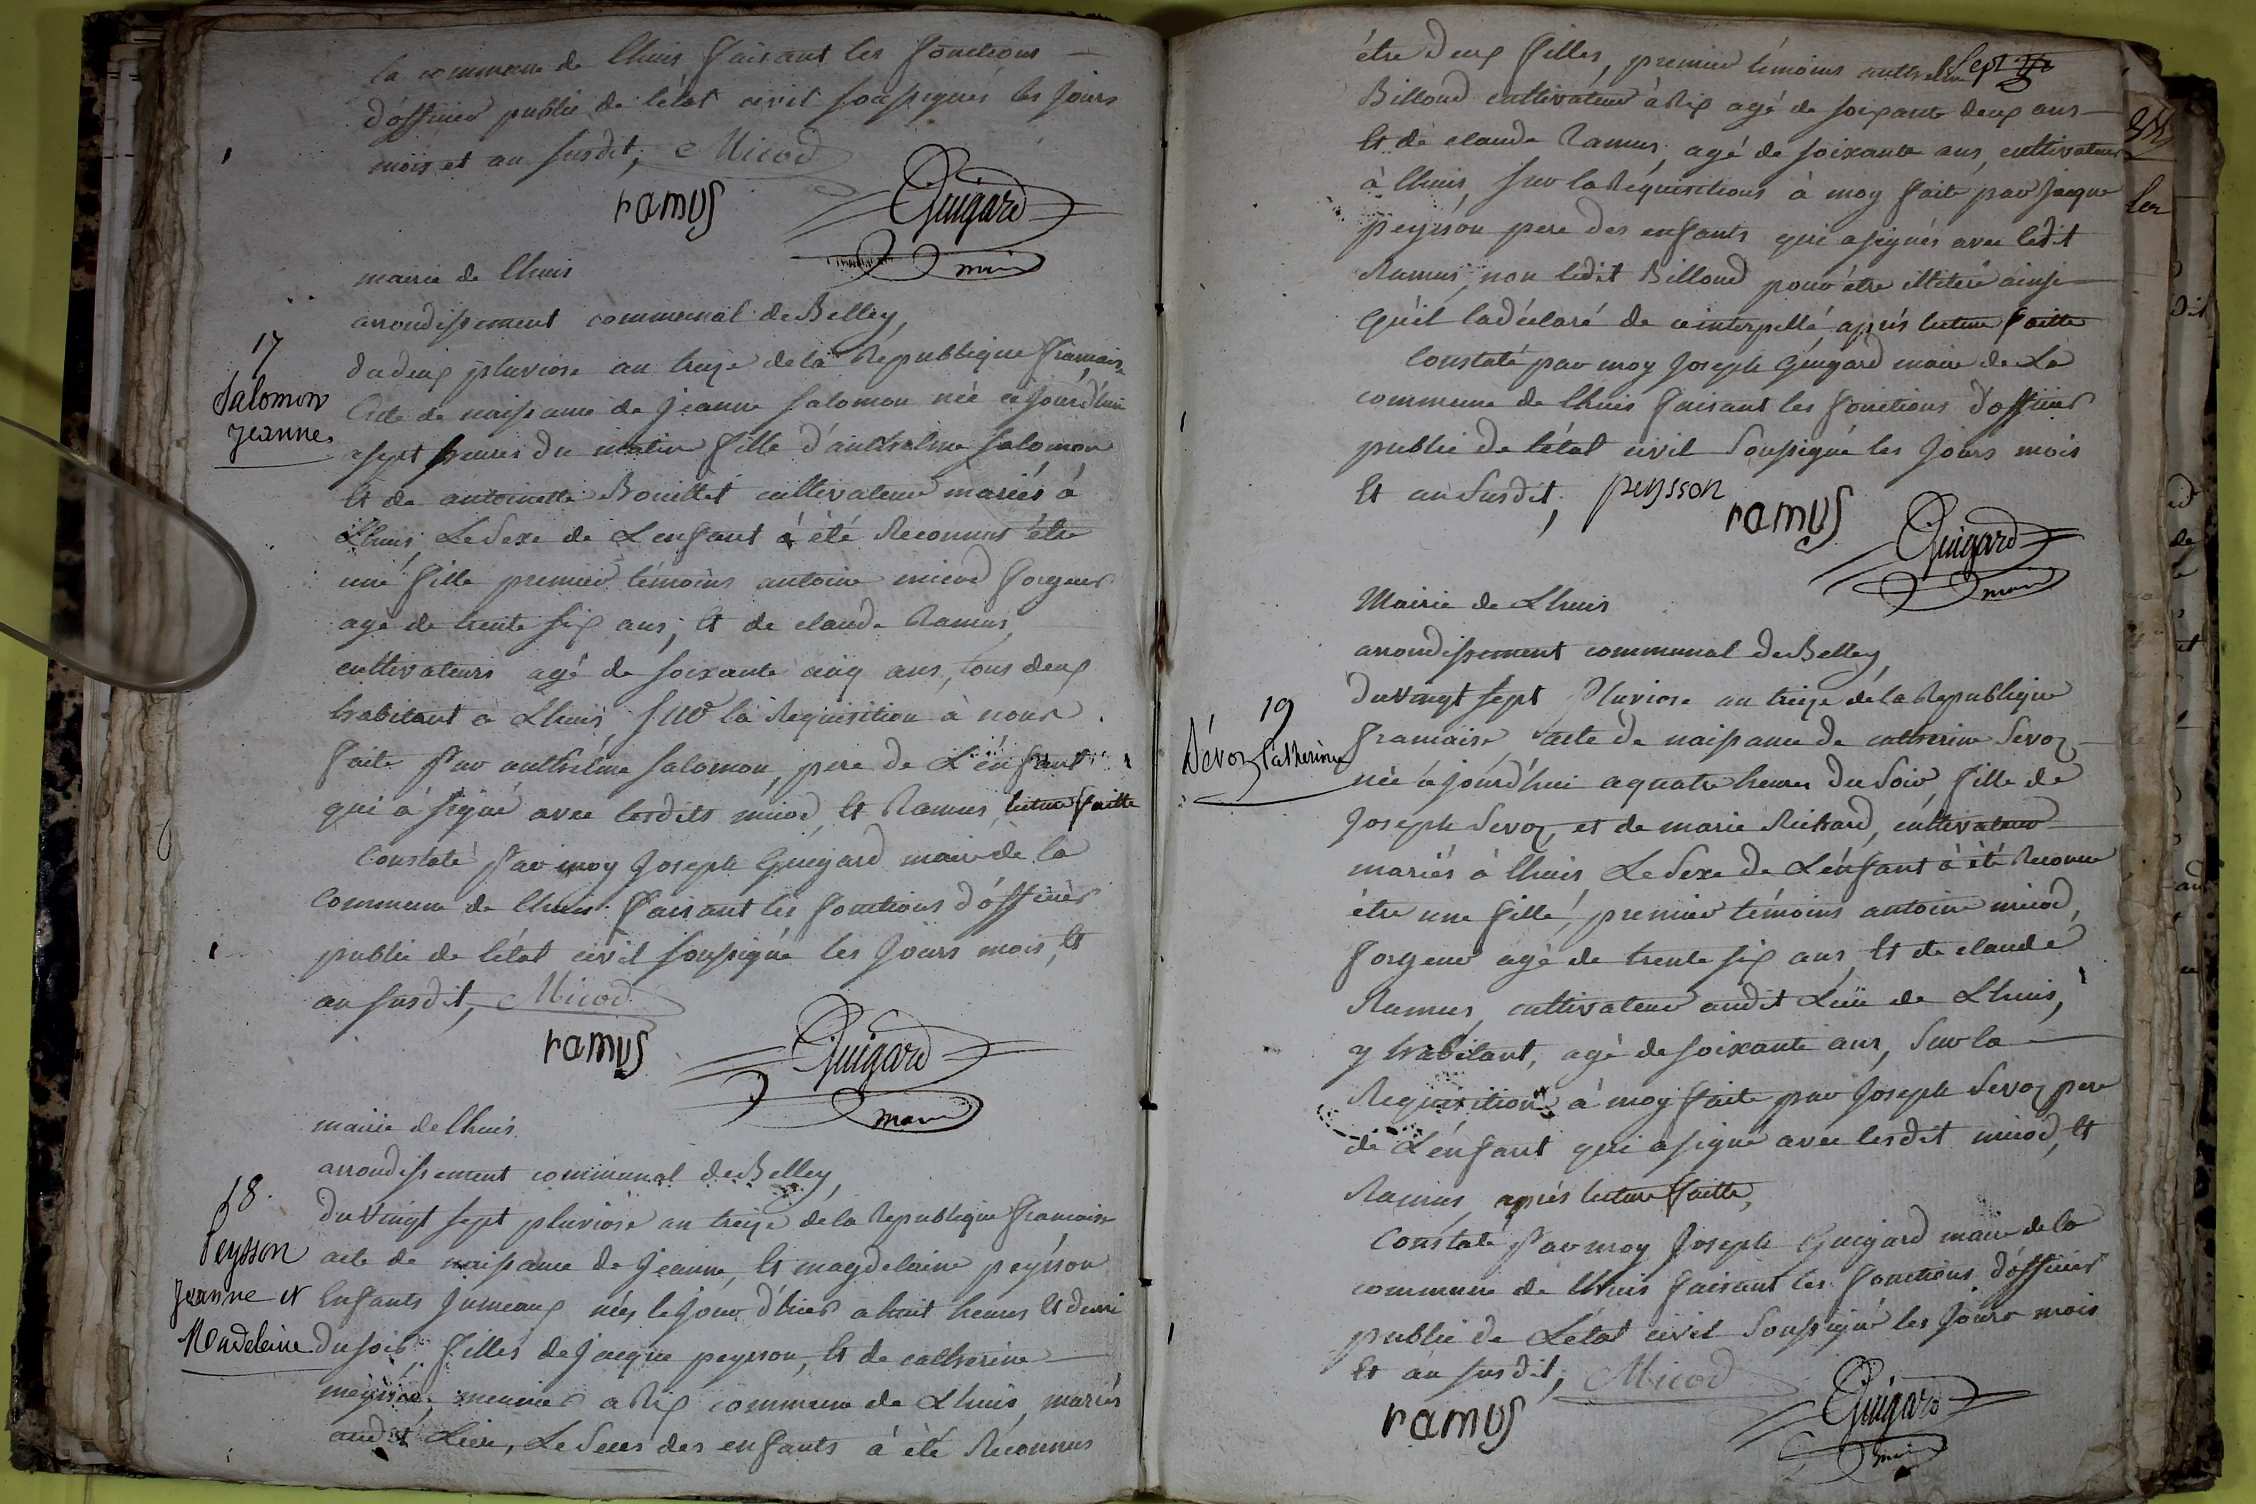 la commune de lhuis faisant les fonctions
d'officier public de l'état civil soussignés les jours
mois et an susdit, Micod
ramus
Guigard
maire
mairie de lhuis
arrondissement communal de Belley,
17
Salomon
Jeanne
du deux pluviose an treize de la Republique française
Acte de naissance de Jeanne Salomon née cejourd'hui
a sept heures du matin fille d'anthelme Salomon
Et de antoinette Bouillet cultivateur mariés à
Lhuis, Le Sexe de L'enfant à été Reconnus être
une fille premier témoins antoine micod forgeur
agé de trente six ans, Et de claude Ramus,
cultivateurs agé de soixante cinq ans, tous deux
habitant a Lhuis, sur la Requisition à nous
faite Par anthelme Salomon, pere de L'enfant
qui à signé avec lesdits micod Et Ramus, lecture faitte
Constaté Par moy Joseph Guigard maire de la
Commune de lhuis faisant les fonctions d'officier
public de l'état civil soussigné les jours mois, Et
an susdit, Micod
ramus
Guigard
maire
mairie de lhuis
arrondissement communal de Belley,
18.
Peysson
Jeanne et
Madeleine
du vingt sept pluviose an treize de la Republique francaise
acte de naissance de Jeanne, Et magdelaine peysson
Enfants Jumeaux nés le jour d'hier a huit heures Et demi
du soir, filles de Jacque peysson, Et de catherine
meunier a Rix commune de Lhuis, mariés
audit Lieu, Le Sexes des enfants à été Reconnus
être deux filles, premier témoins anthelme
Sept
Billoud cultivateur à Rix agé de soixante deux ans
Et de claude Ramus, agé de soixante ans, cultivateur
à lhuis, sur la Requisitions à moy faite par Jacque
peysson pere des enfants qui a signés avec ledit
Ramus, non ledit Billoud pour être illiteré ainsi
Qu'il la déclaré de ce interpellé, après lecture faitte
Constaté par moy Joseph Guigard maire de La
commune de lhuis faisant les fonctions d'officier
public de l'état civil Soussigné les Jours mois
Et an Susdit, peysson
ramus
Guigard
maire
Mairie de Lhuis
arrondissement communal de Belley,
19
Sévoz Catherine
du vingt sept Pluviose an treize de la Republique
francaise, acte de naissance de catherine Sevoz
née cejourd'hui a quatre heures du Soir, fille de
Joseph Sevoz, et de marie Richard, cultivateur
mariés à lhuis Le Sexe de L'enfant à été Reconnu
être une fille, premier témoins antoine micod,
forgeur agé de trente six ans, Et de claude
Ramus, cultivateur audit Lieu de Lhuis,
y habitant, agé de soixante ans, Sur la
Requisition à moy faite par Joseph Sevoz pere
de L'enfant qui a signé avec lesdit micod, Et
Ramus, après lecture faitte,
Constaté Par moy Joseph Guigard maire de la
commune de lhuis faisant les fonctions d'officier
public de L'état civil Soussigné les Jours mois
Et an susdit, Micod
ramus
Guigard
maire